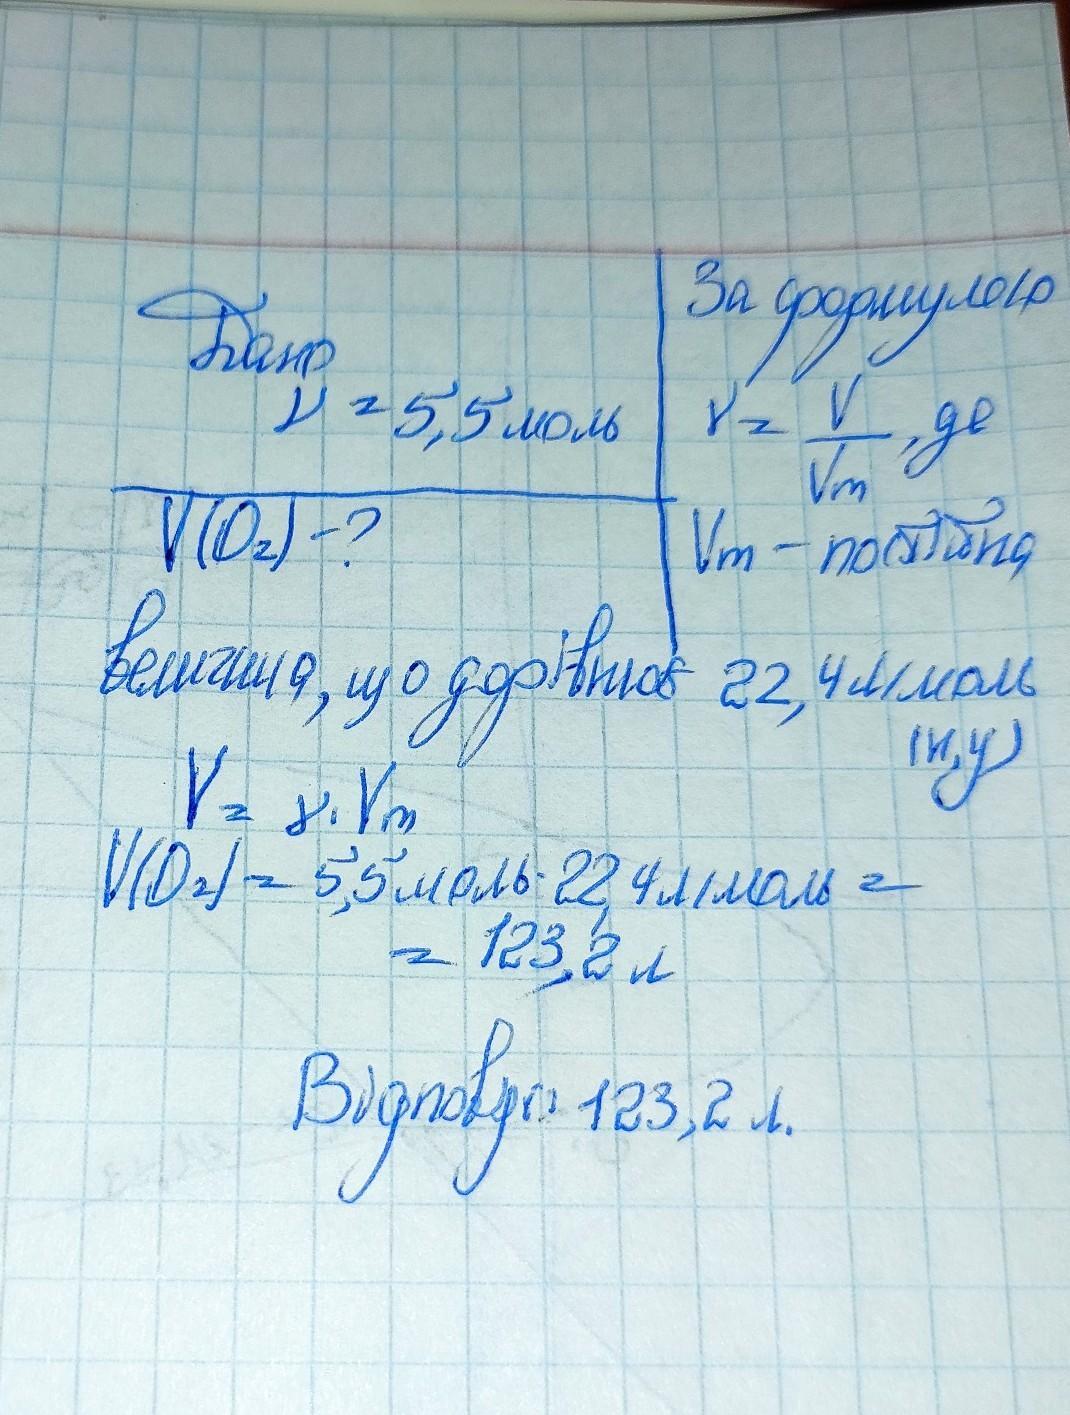 Дано
ν = 5,5 моль
V(O₂) - ?
За формулою
ν = V/Vm, де
Vm – постійна
величина, що дорівнює 22,4 л/моль
(н,у)
V = ν · Vm
V(O₂) = 5,5 моль · 22,4 л/моль =
= 123,2 л
Відповідь: 123,2 л.